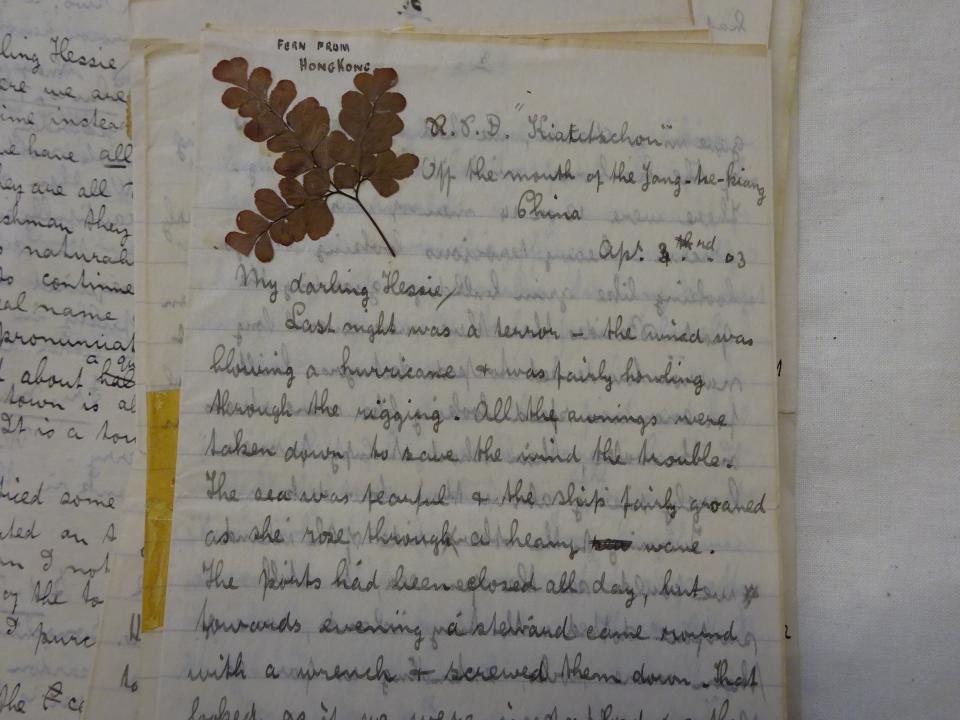 FERN FROM
HONGKONG
R.P.D. "Kiatctschou"
Off the mouth of the Yang-tse-Kiang
China
Apr. 3rd 03
My darling Hessie/
Last night was a terror - the wind was
blowing a hurricane & was fairly howling
through the rigging. All the awnings were
taken down to save the wind the trouble.
The sea was fearful & the ship fairly groaned
as she rose through a heavy wave.
The ports had been closed all day, but
towards evening a steward came round
with a wrench & screwed them down. That
looked as if we were
ling Hessie/
ere we are
ime instea
we have all
hey are all
shman they
s natural
to continue
eal name
pronunciat
a qu
t about had
town is al
It is a tow
ticed some
ated on t
n I not
by the to
I purc
the
to
1
2